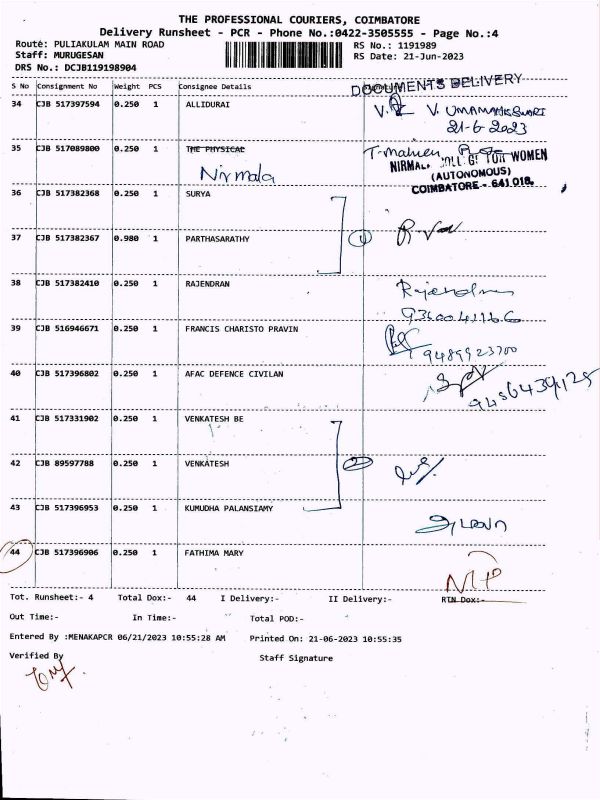 THE PROFESSIONAL COURIERS, COIMBATORE
Delivery Runsheet - PCR - Phone No.:0422-3505555 - Page No.:4
Route: PULIAKULAM MAIN ROAD
RS No.: 1191989
Staff: MURUGESAN
RS Date: 21-Jun-2023
DRS No.: DCJB119198904
S No Consignment No Weight PCS Consignee Details
DOCUMENTS DELIVERY
34 CJB 517397594 0.250 1 ALLIDURAI
V. UMAMAHESWARI
21-6-2023
35 CJB 517089800 0.250 1 THE PHYSICAL
Nirmala
NIRMALA COLLEGE FOR WOMEN
(AUTONOMOUS)
COIMBATORE - 641 018.
36 CJB 517382368 0.250 1 SURYA
37 CJB 517382367 0.980 1 PARTHASARATHY
1
38 CJB 517382410 0.250 1 RAJENDRAN
Rajendran
9360041166
39 CJB 516946671 0.250 1 FRANCIS CHARISTO PRAVIN
9489923700
40 CJB 517396802 0.250 1 AFAC DEFENCE CIVILAN
41 CJB 517331902 0.250 1 VENKATESH BE
42 CJB 89597788 0.250 1 VENKATESH
2
43 CJB 517396953 0.250 1 KUMUDHA PALANSIAMY
44 CJB 517396906 0.250 1 FATHIMA MARY
Tot. Runsheet:- 4 Total Dox:- 44 I Delivery:- II Delivery:- RTN Dox:-
Out Time:- In Time:- Total POD:-
Entered By :MENAKAPCR 06/21/2023 10:55:28 AM Printed On: 21-06-2023 10:55:35
Verified By Staff Signature